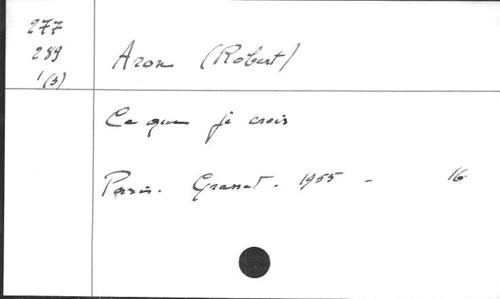 277
289
1(3)
Aron (Robert)
Ce que je crois
Paris. Grasset. 1955 - 16